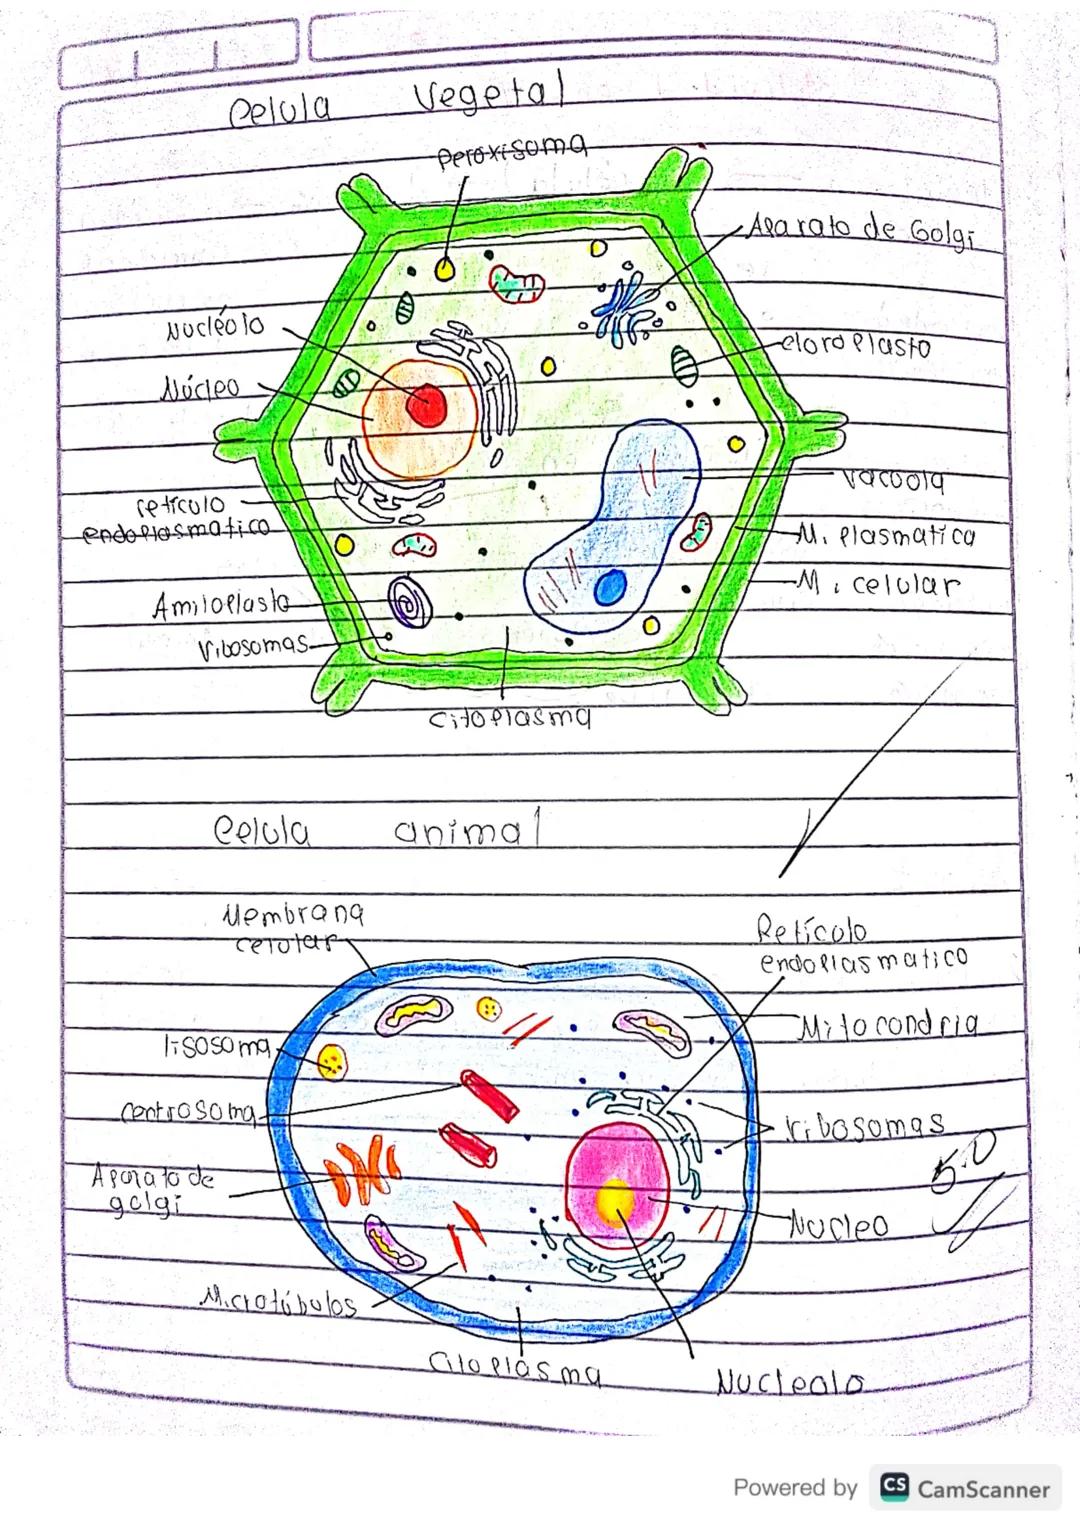 Celula Vegetal
Peroxisoma
Aparato de Golgi
Nucléolo
cloroplasto
Núcleo
vacoola
retículo
endoplasmatico
M. plasmatica
M. celular
Amiloplasto
Ribosomas
Citoplasma
Celula animal
Membrana
celular
Retículo
endoplasmatico
Mitocondria
lisosoma
centrosoma
ribosomas
5.0
Aparato de
golgi
Nucleo
Microtúbulos
Citoplasma
Nucleolo
Powered by CS CamScanner